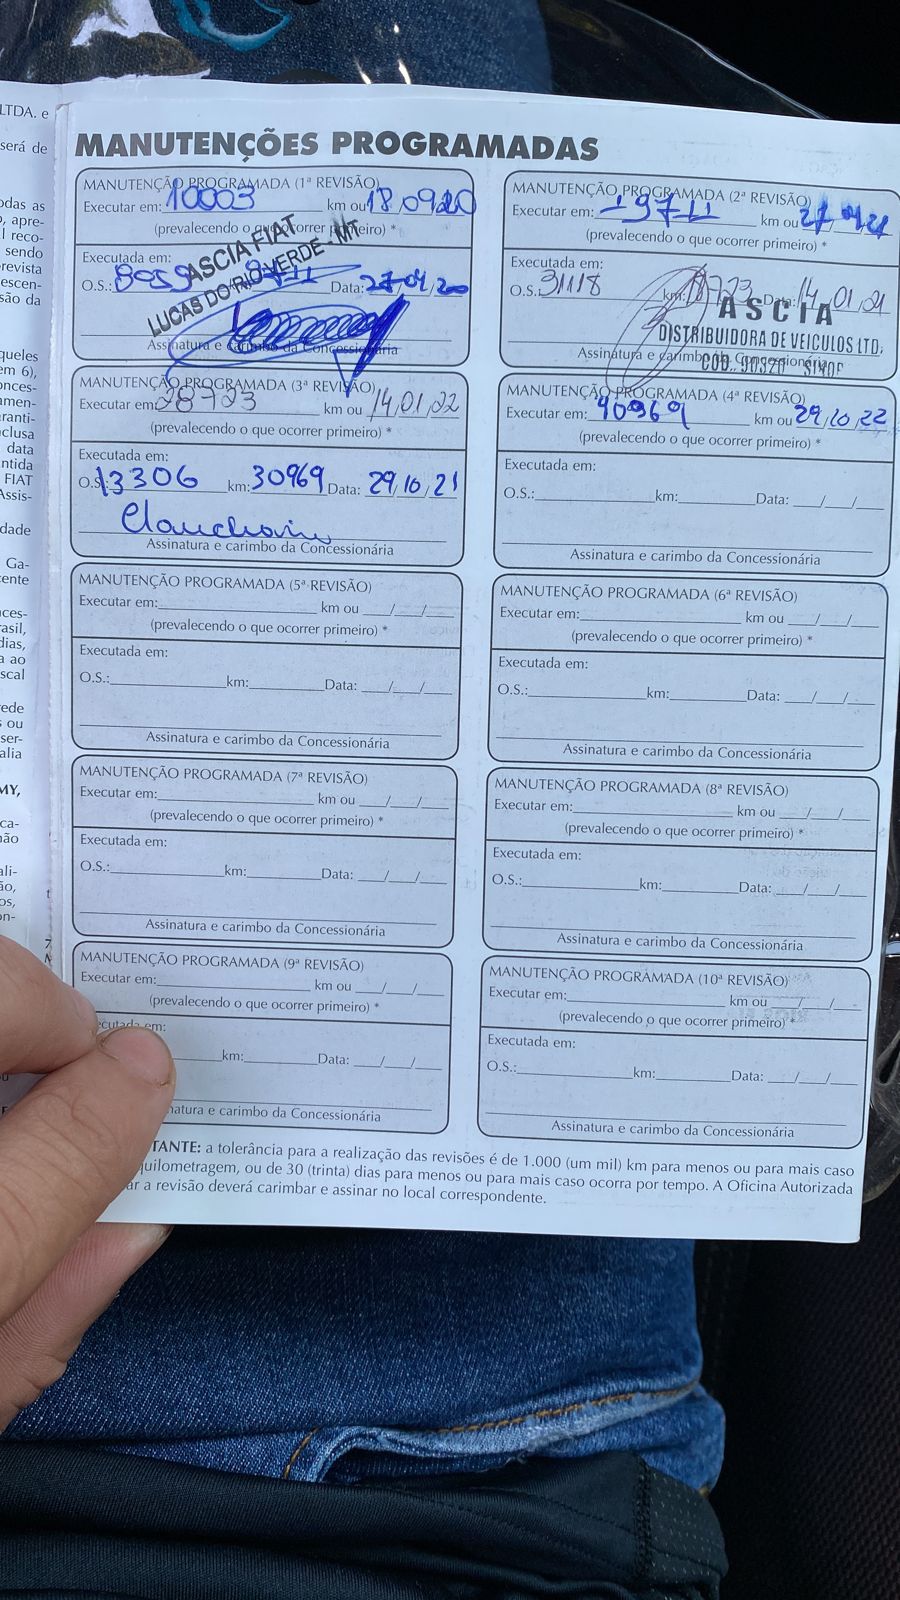 LTDA. e
será de
odas as
o, apre-
l reco-
sendo
revista
escen-
são da
queles
em 6),
onces-
amen-
aranti-
nclusa
data
ntida
FIAT
Assis-
dade
Ga-
cente
nces-
rasil,
dias,
a ao
scal
rede
s ou
ser-
alia
MY,
ca-
não
ali-
ão,
os,
on-
MANUTENÇÕES PROGRAMADAS
MANUTENÇÃO PROGRAMADA (1ª REVISÃO)
Executar em: 10003 km ou 18/09/20
(prevalecendo o que ocorrer primeiro) *
Executada em:
O.S.: Data: 27/04/20
ASCIA FIAT
LUCAS DO RIO VERDE - MT
Assinatura e carimbo da Concessionária
MANUTENÇÃO PROGRAMADA (2ª REVISÃO)
Executar em: 19711 km ou 27/04/21
(prevalecendo o que ocorrer primeiro) *
Executada em:
O.S. 31118 km: 18723 Data: 14/01/21
ASCIA
DISTRIBUIDORA DE VEICULOS LTD.
COD. 90320 SINOP
Assinatura e carimbo da Concessionária
MANUTENÇÃO PROGRAMADA (3ª REVISÃO)
Executar em: 28723 km ou 14/01/22
(prevalecendo o que ocorrer primeiro) *
Executada em:
O.S.: 13306 km: 30969 Data: 29/10/21
Assinatura e carimbo da Concessionária
MANUTENÇÃO PROGRAMADA (4ª REVISÃO)
Executar em: 40969 km ou 29/10/22
(prevalecendo o que ocorrer primeiro) *
Executada em:
O.S.:__________km:________Data: ___/___/___
Assinatura e carimbo da Concessionária
MANUTENÇÃO PROGRAMADA (5ª REVISÃO)
Executar em:__________ km ou ___/___/___
(prevalecendo o que ocorrer primeiro) *
Executada em:
O.S.:__________km:________Data: ___/___/___
Assinatura e carimbo da Concessionária
MANUTENÇÃO PROGRAMADA (6ª REVISÃO)
Executar em:__________ km ou ___/___/___
(prevalecendo o que ocorrer primeiro) *
Executada em:
O.S.:__________km:________Data: ___/___/___
Assinatura e carimbo da Concessionária
MANUTENÇÃO PROGRAMADA (7ª REVISÃO)
Executar em:__________ km ou ___/___/___
(prevalecendo o que ocorrer primeiro) *
Executada em:
O.S.:__________km:________Data: ___/___/___
Assinatura e carimbo da Concessionária
MANUTENÇÃO PROGRAMADA (8ª REVISÃO)
Executar em:__________ km ou ___/___/___
(prevalecendo o que ocorrer primeiro) *
Executada em:
O.S.:__________km:________Data: ___/___/___
Assinatura e carimbo da Concessionária
MANUTENÇÃO PROGRAMADA (9ª REVISÃO)
Executar em:__________ km ou ___/___/___
(prevalecendo o que ocorrer primeiro) *
ecutada em:
km:________Data: ___/___/___
natura e carimbo da Concessionária
MANUTENÇÃO PROGRAMADA (10ª REVISÃO)
Executar em:__________ km ou ___/___/___
(prevalecendo o que ocorrer primeiro) *
Executada em:
O.S.:__________km:________Data: ___/___/___
Assinatura e carimbo da Concessionária
TANTE: a tolerância para a realização das revisões é de 1.000 (um mil) km para menos ou para mais caso
quilometragem, ou de 30 (trinta) dias para menos ou para mais caso ocorra por tempo. A Oficina Autorizada
ar a revisão deverá carimbar e assinar no local correspondente.